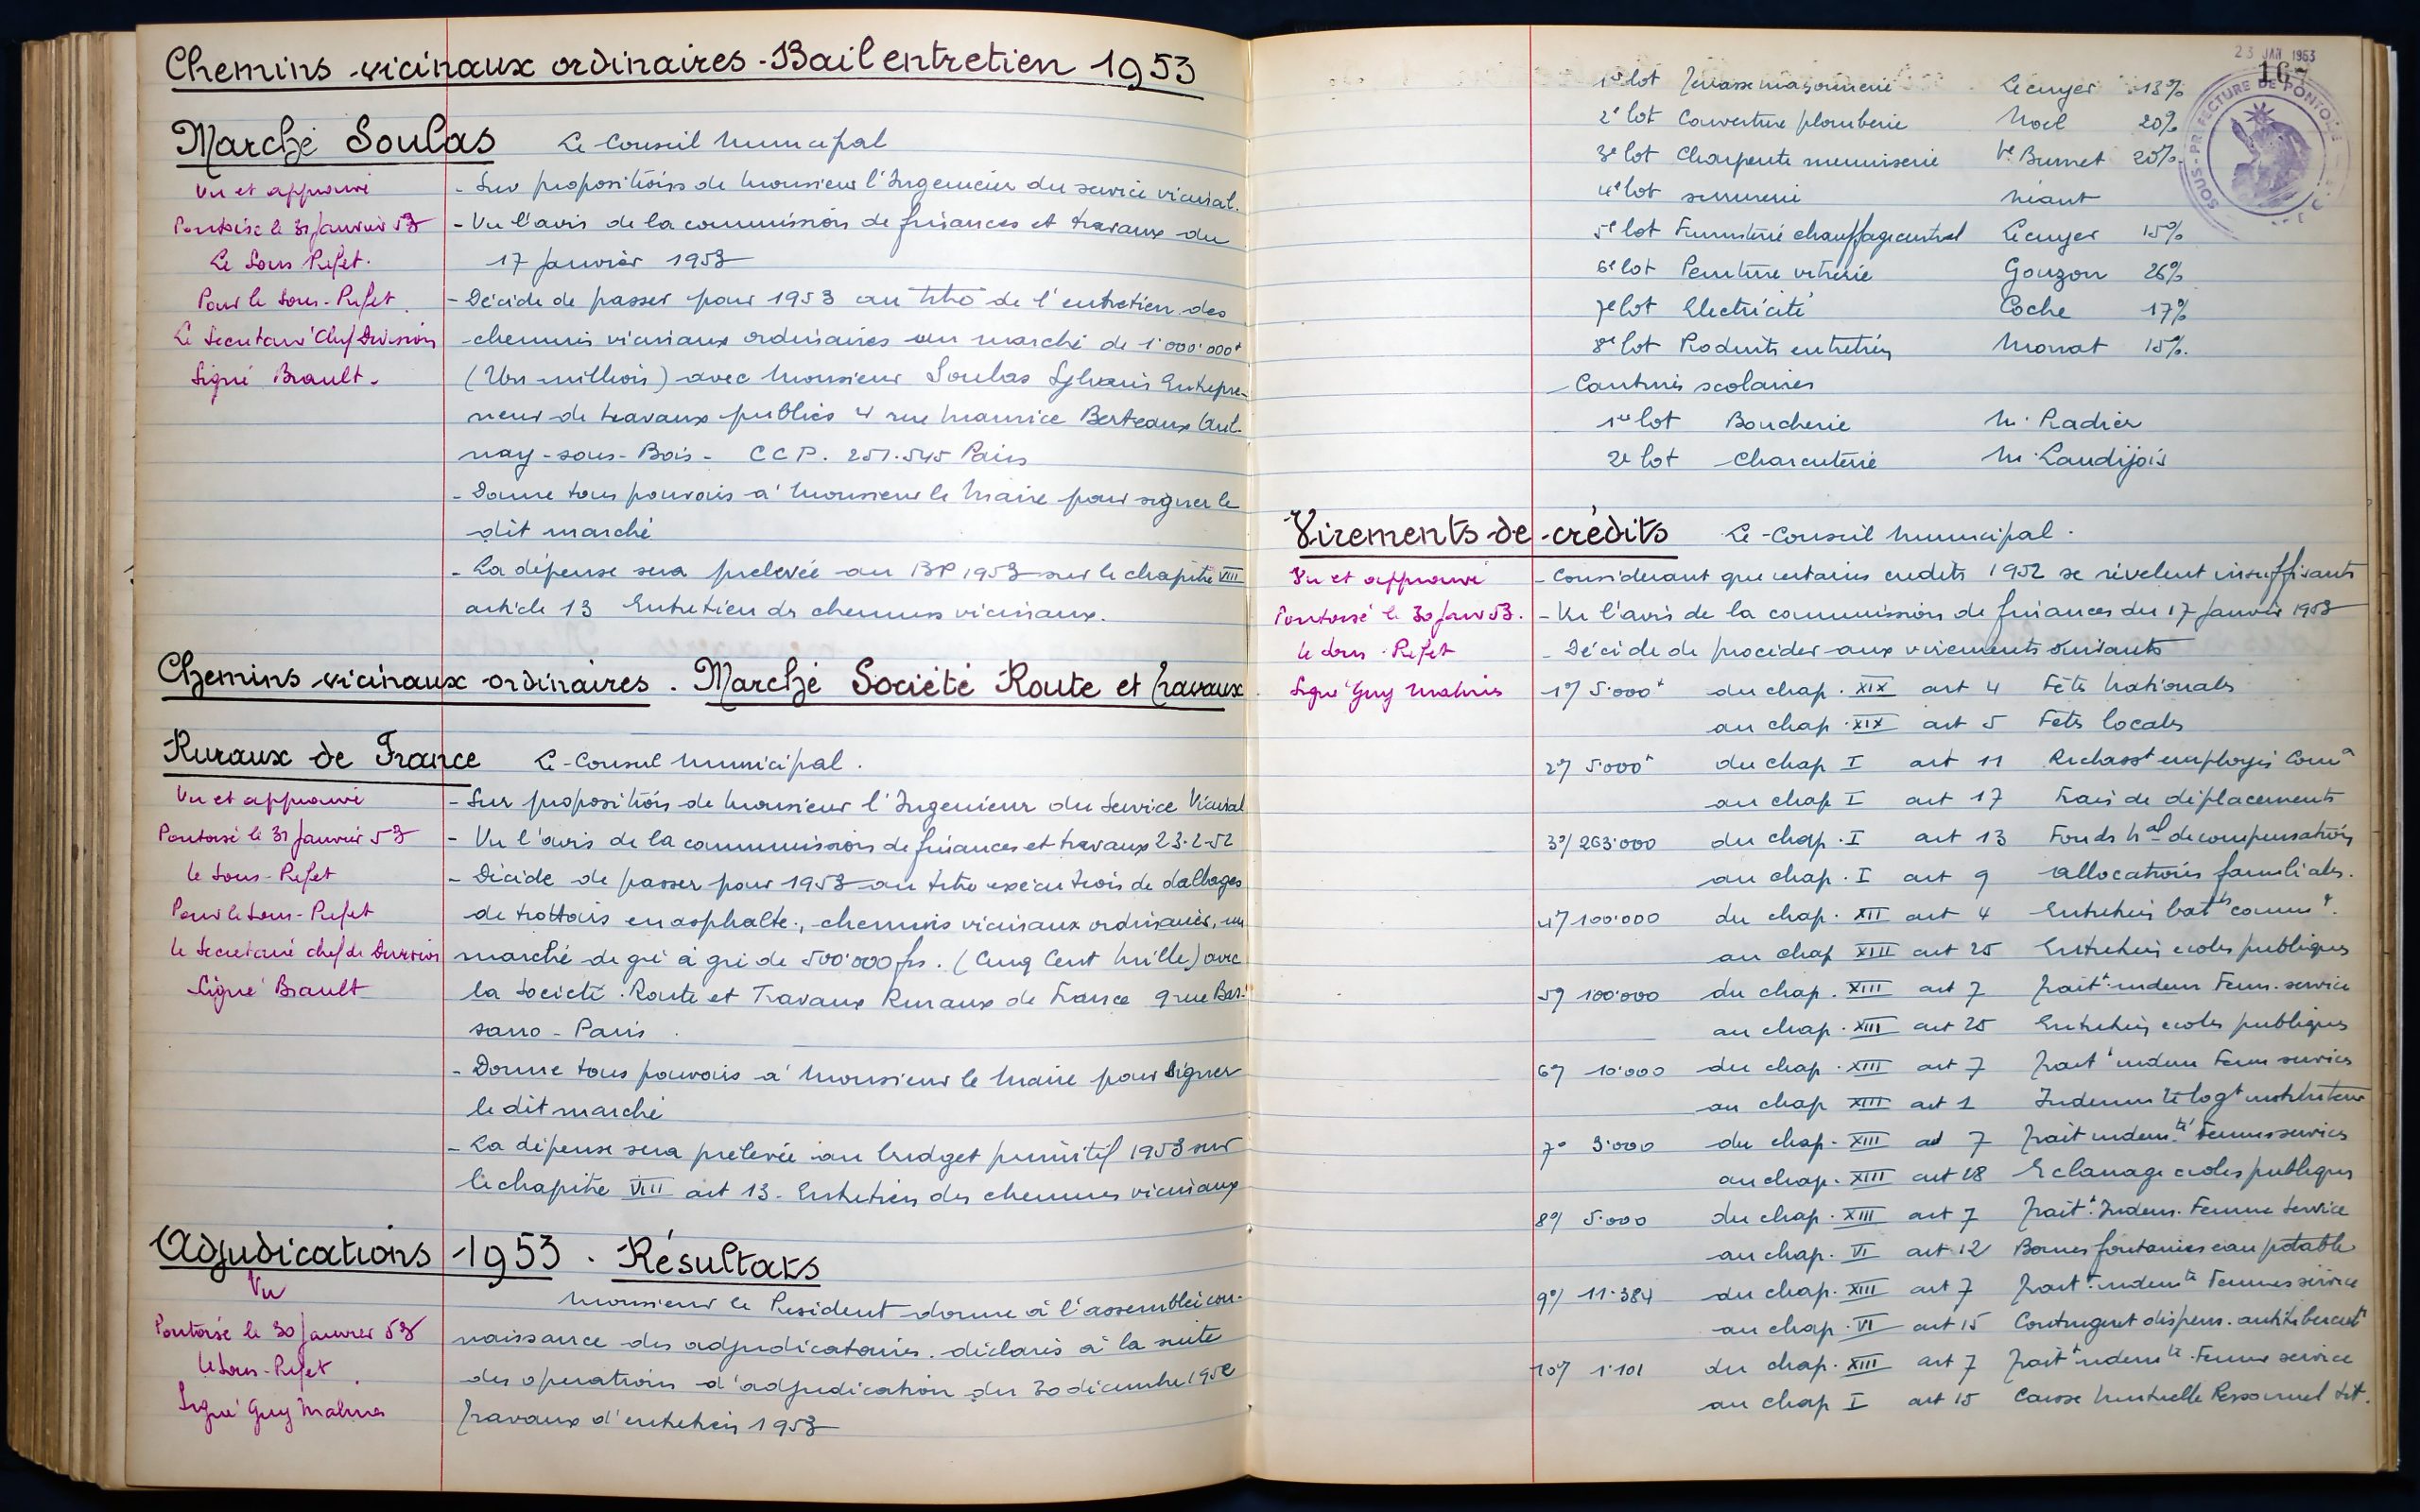 Chemins vicinaux ordinaires - Bail entretien 1953
Marché Soulas Le Conseil Municipal
Vu et approuvé
Pontoise le 31 Janvier 53
Le Sous Préfet.
Pour le Sous-Préfet.
Le Secretaire Chef Division
Signé Brault.
- Sur propositions de Monsieur l'Ingenieur du service vicinal.
- Vu l'avis de la commission de finances et travaux du
17 Janvier 1953
- Décide de passer pour 1953 au titre de l'entretien des
chemins vicinaux ordinaires un marché de 1.000.000f
(Un million) avec Monsieur Soulas Sylvain Entrepre-
neur de travaux publics 4 rue Maurice Berteaux Aul-
nay-sous-Bois - CCP. 251.545 Paris
- Donne tous pouvoirs à Monsieur le Maire pour signer le
dit marché
- La dépense sera prelevée au BP 1953 sur le chapitre VIII
article 13 Entretien des chemins vicinaux.
Chemins vicinaux ordinaires. Marché Société Route et Travaux
Ruraux de France Le Conseil Municipal.
Vu et approuvé
Pontoise le 31 Janvier 53
le Sous-Préfet
Pour le Sous-Préfet
le Secretaire chef de Division
Signé Brault
- Sur proposition de Monsieur l'Ingenieur du Service Vicinal
- Vu l'avis de la commission de finances et travaux 23.2.52
- Décide de passer pour 1953 au titre execution de dallages
de trottoirs en asphalte, chemins vicinaux ordinaires, un
marché de gré à gré de 500.000 frs. (Cinq Cent Mille) avec
la Société Route et Travaux Ruraux de France 9 rue Bas-
sano - Paris.
- Donne tous pouvoirs à Monsieur le Maire pour signer
le dit marché
- La dépense sera prélevée au budget primitif 1953 sur
le chapitre VIII art 13. Entretien des chemins vicinaux
Adjudications 1953. Résultats
Vu
Pontoise le 30 Janvier 53
le Sous-Préfet.
Signé Guy
Monsieur le Président donne à l'assemblée con-
naissance des adjudicataires déclarés à la suite
des operations d'adjudication du 30 décembre 1952
Travaux d'entretien 1953
23 JAN 1953
167
SOUS-PRÉFECTURE DE PONTOISE
1er lot Terrasse maçonnerie Lecuyer 18%
2e lot Couverture plomberie Noel 20%
3e lot Charpente menuiserie Ve Burnet 20%
4e lot serrurerie Néant
5e lot Fumisterie chauffage central Lecuyer 15%
6e lot Peinture vitrerie Gouzon 26%
7e lot Electricité Coche 17%
8e lot Produits entretien Monnat 15%.
Cantines scolaires
1er lot Boucherie M. Radier
2e lot Charcuterie M. Landijois
Virements de crédits Le Conseil Municipal.
Vu et approuvé
Pontoise le 30 Janv 53.
le Sous-Préfet
Signé Guy
- Considerant que certains credits 1952 se révèlent insuffisants
- Vu l'avis de la commission de finances du 17 Janvier 1953
- Décide de proceder aux virements suivants
1°/ 5.000f du chap. XIX art 4 Fêtes Nationales
au chap. XIX art 5 Fêtes locales
2°/ 5.000f du chap I art 11 employés Com
au chap I art 17 Frais de déplacements
3°/ 263.000 du chap. I art 13 Fonds Nal de compensation
au chap. I art 9 allocations familiales.
4°/ 100.000 du chap. XII art 4 Entretien batts comm
au chap XIII art 25 Entretien ecoles publiques
5°/ 100.000 du chap. XIII art 7 Trait. indem Fem. service
au chap. XIII art 25 Entretien ecoles publiques
6°/ 10.000 du chap. XIII art 7 Trait indem Fem service
au chap XIII art 1 Indemnité logt instituteur
7° 3.000 du chap. XIII art 7 Trait indemté Femmes service
au chap. XIII art 28 Eclairage ecoles publiques
8°/ 5.000 du chap. XIII art 7 Trait. Indem. Femme Service
au chap. VI art 12 Bornes fontaines eau potable
9°/ 11.384 du chap. XIII art 7 Trait indemté Femmes service
au chap. VI art 15 Contingent dispens. antituberculx
10°/ 1.101 du chap. XIII art 7 Trait indemté Femme service
au chap I art 15 Caisse Mutuelle Personnel tit.